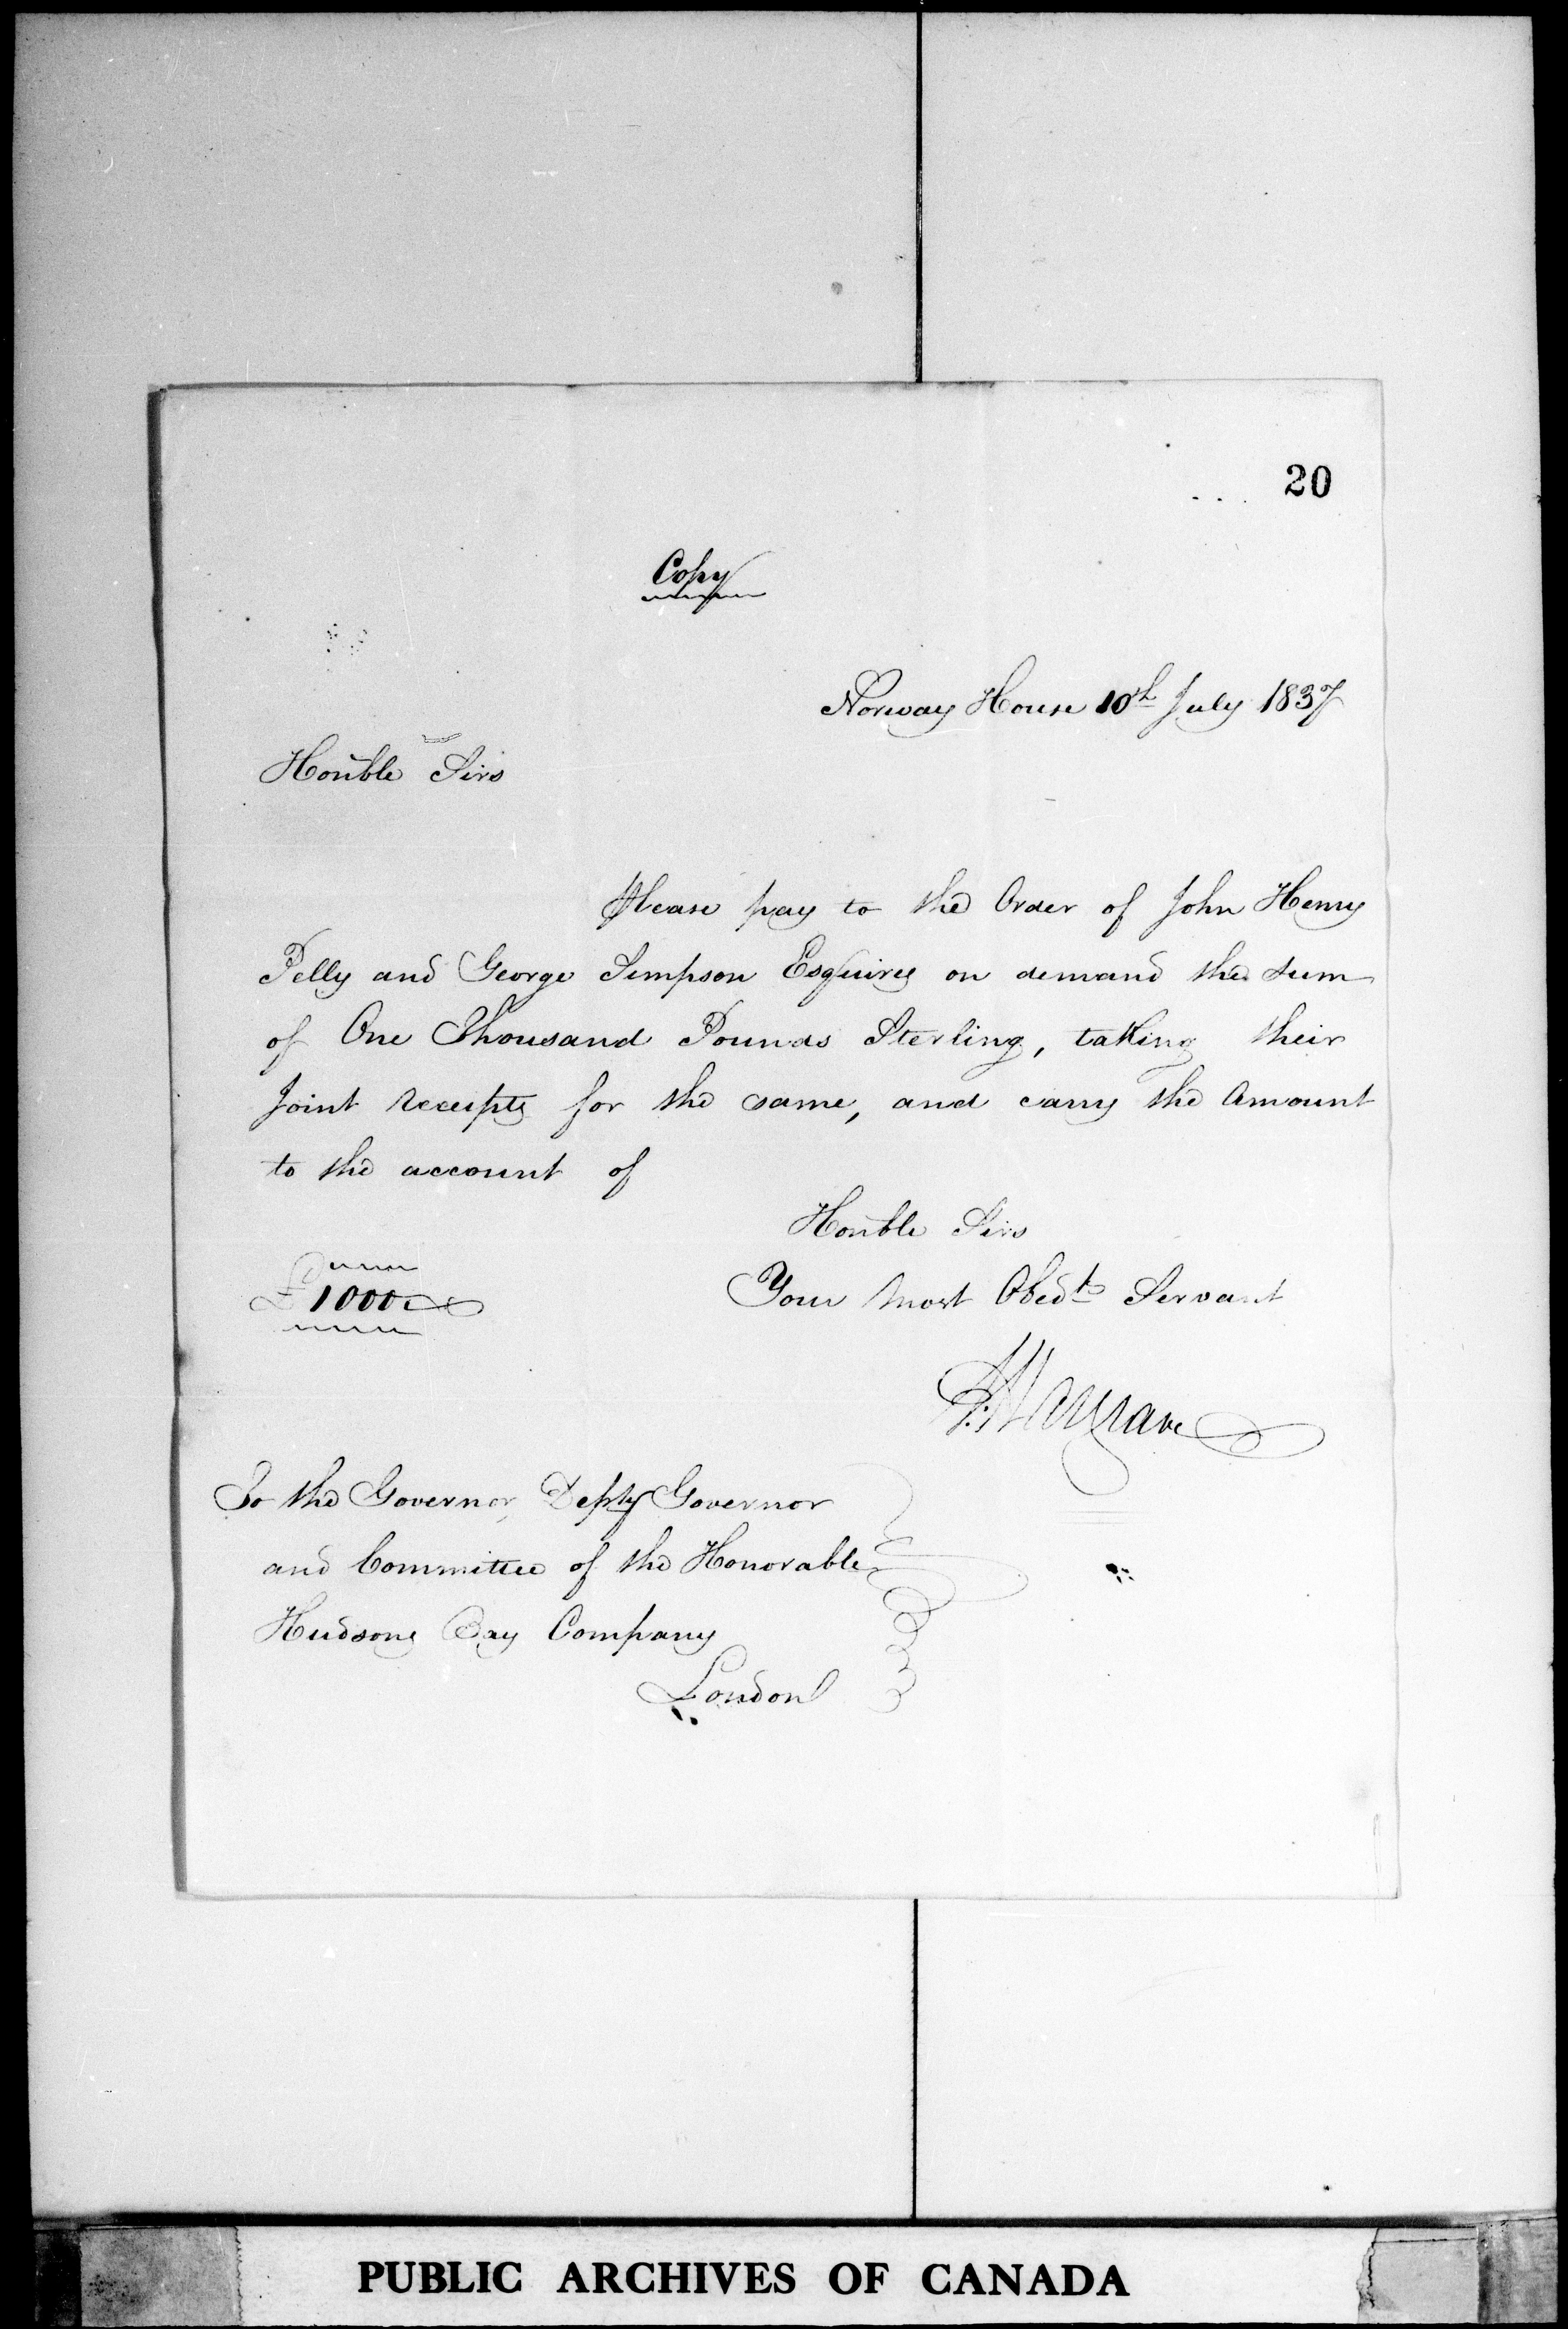 20
Copy
Norway House 10th July 1837
Honble Sirs
Please pay to the Order of John Henry
Pelly and George Simpson Esquires on demand the sum
of One Thousand Pounds Sterling, taking their
Joint Receipts for the same, and carry the Amount
to the account of
Honble Sirs
£1000
Your Most Obedt Servant
J. Hargrave
To the Governor, Depty Governor
and Committee of the Honorable
Hudsons Bay Company
London
PUBLIC ARCHIVES OF CANADA